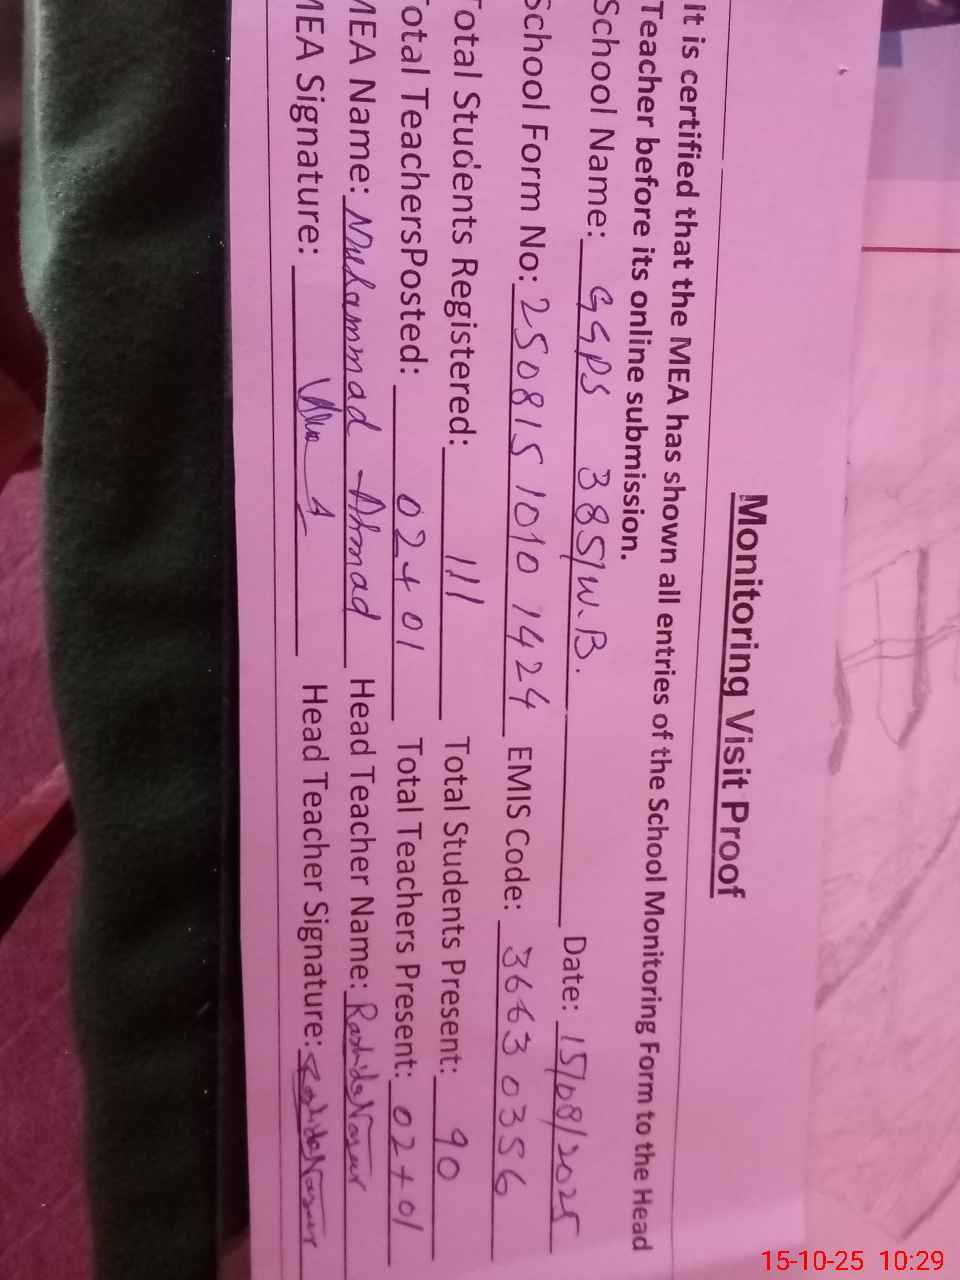 Monitoring Visit Proof
It is certified that the MEA has shown all entries of the School Monitoring Form to the Head
Teacher before its online submission.
School Name: GGPS 385/W.B. Date: 15/08/2025
School Form No: 250815 1010 1424 EMIS Code: 36630356
Total Students Registered: 111 Total Students Present: 90
Total TeachersPosted: 02+01 Total Teachers Present: 02+01
MEA Name: Muhammad Ahmad Head Teacher Name: Rashida
MEA Signature: Head Teacher Signature: Rashida
15-10-25 10:29